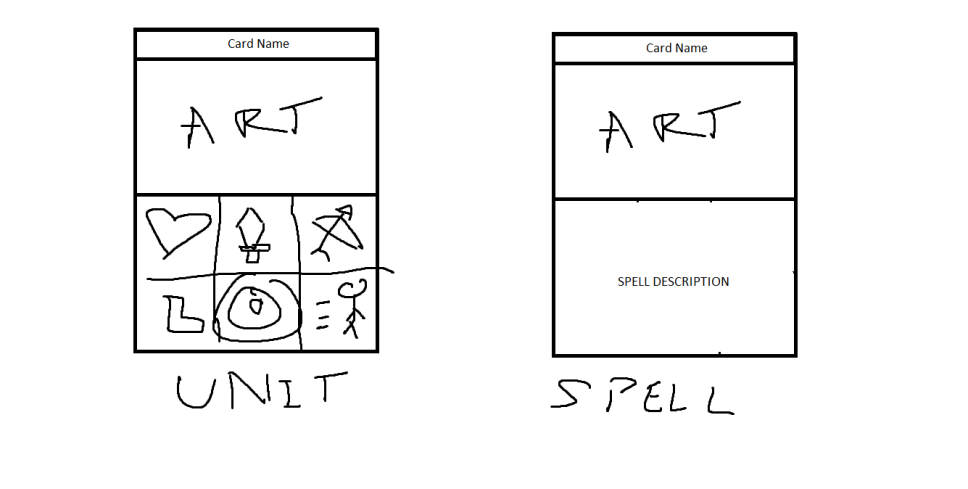 Card Name
ART
UNIT
Card Name
ART
SPELL DESCRIPTION
SPELL